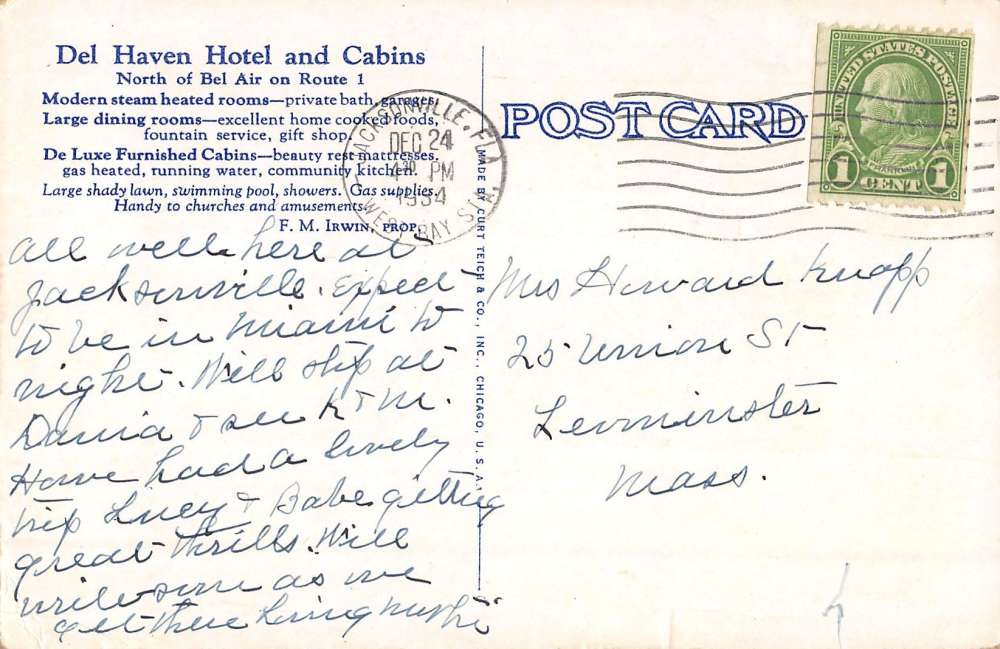 Del Haven Hotel and Cabins
North of Bel Air on Route 1
Modern steam heated rooms—private bath, garages.
Large dining rooms—excellent home cooked foods,
fountain service, gift shop.
De Luxe Furnished Cabins—beauty rest mattresses,
gas heated, running water, community kitchen.
Large shady lawn, swimming pool, showers. Gas supplies.
Handy to churches and amusements.
F. M. IRWIN, PROP.
JACKSONVILLE, FLA.
DEC 24
4 30 PM
1934
WEST BAY STA.
POST CARD
UNITED STATES POSTAGE
FRANKLIN
1 CENT 1
MADE BY CURT TEICH & CO., INC., CHICAGO, U. S. A.
all well here at
Jacksonville. Expect
to be in Miami to
night. Will stop at
Dania & see K & M.
Have had a lovely
trip Lucy & Babe getting
great thrills. Will
write soon as we
get there
Mrs Howard Knapp
25 Union St
Leominster
Mass.